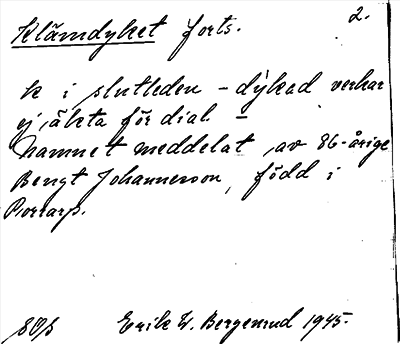 Klämdyket forts. 2.
k i slutleden - dýkad verkar
ej äkta för dial -
Namnet meddelat av 86-årige
Bengt Johannesson, född i
Porrarp.
Erik W. Bergenrud 1945.